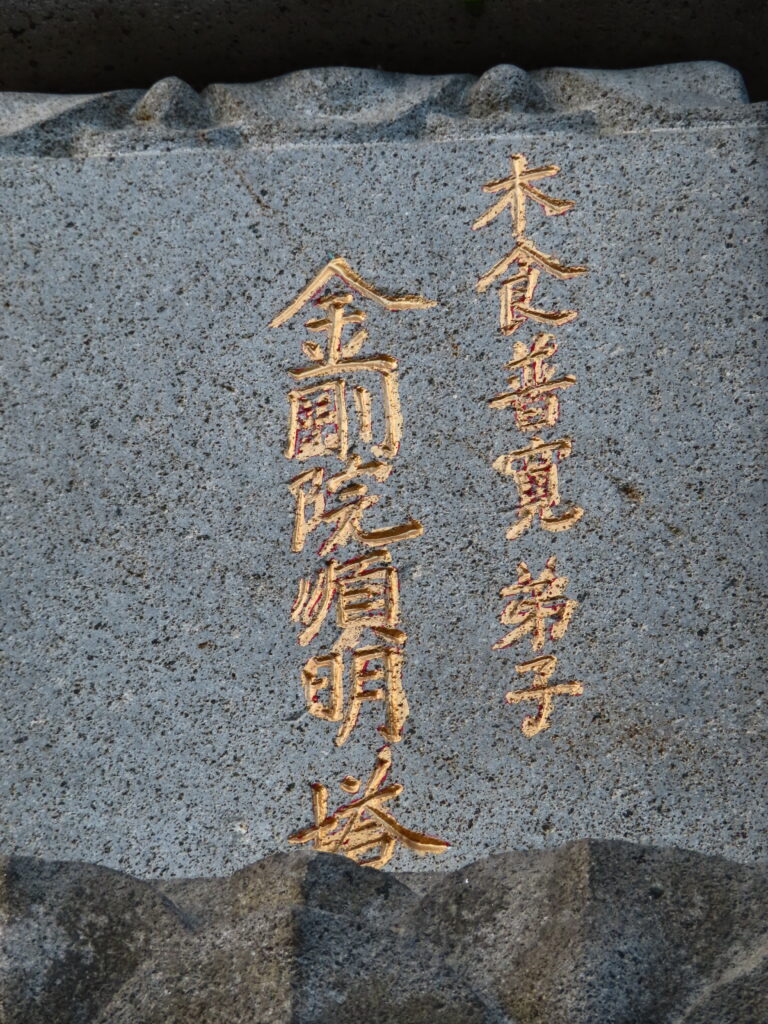 木食普寛弟子
金剛院順明塔